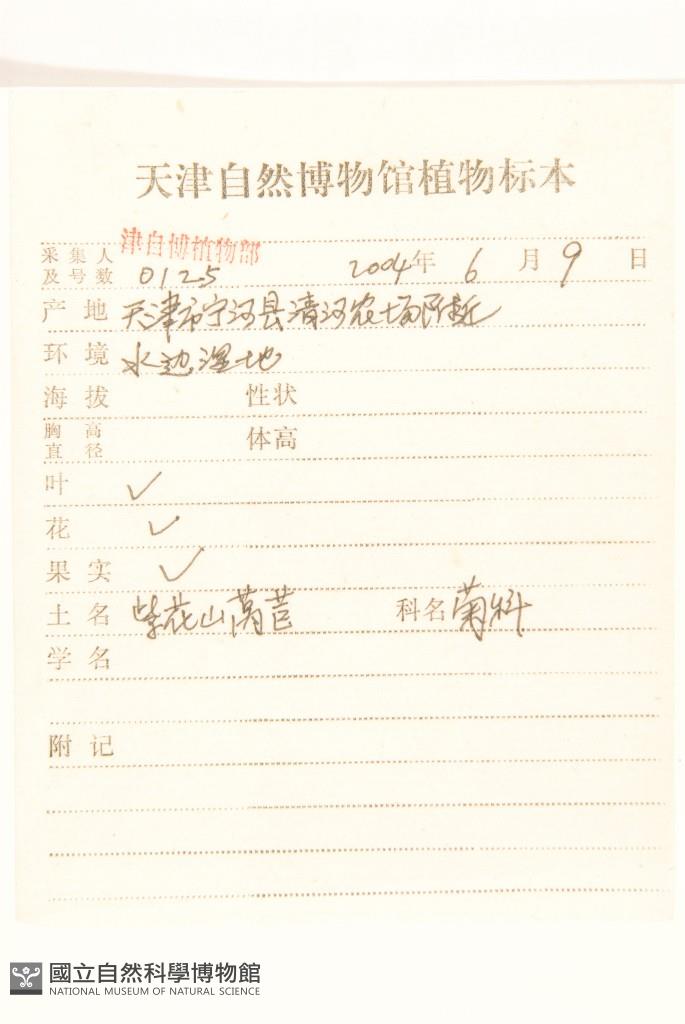 天津自然博物馆植物标本
采集人及号数 津自博植物部 0125 2004年 6 月 9 日
产地 天津市宁河县清河农场附近
环境 水边湿地
海拔 性状
胸高直径 体高
叶 ✓
花 ✓
果实 ✓
土名 紫花山莴苣 科名 菊科
学名
附记
國立自然科學博物館
NATIONAL MUSEUM OF NATURAL SCIENCE